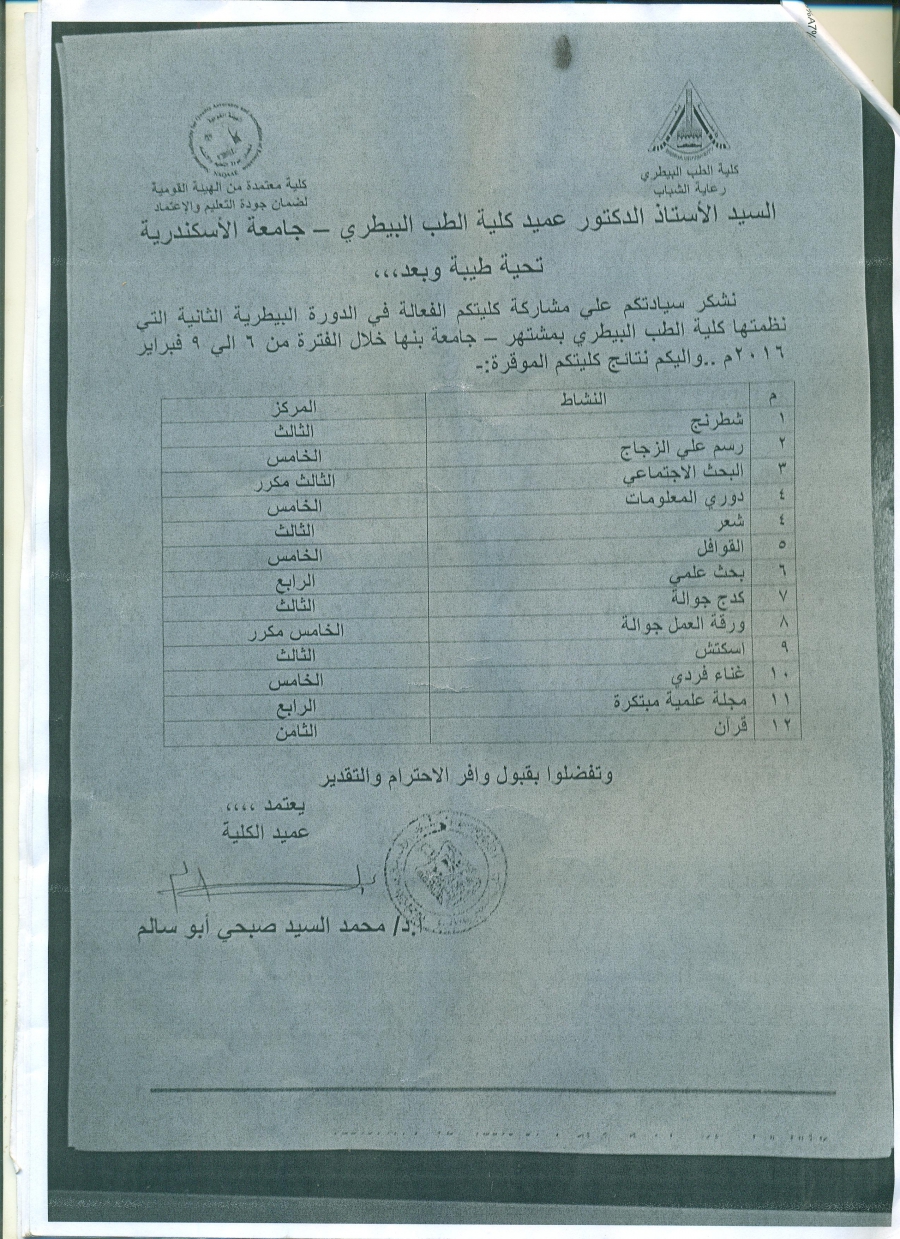 كلية الطب البيطري
رعاية الشباب
كلية معتمدة من الهيئة القومية
لضمان جودة التعليم والإعتماد
السيد الأستاذ الدكتور عميد كلية الطب البيطري – جامعة الأسكندرية
تحية طيبة وبعد،،،
نشكر سيادتكم علي مشاركة كليتكم الفعالة في الدورة البيطرية الثانية التي
نظمتها كلية الطب البيطري بمشتهر – جامعة بنها خلال الفترة من ٦ الي ٩ فبراير
٢٠١٦م ..واليكم نتائج كليتكم الموقرة:-
م النشاط المركز
١ شطرنج الثالث
٢ رسم علي الزجاج الخامس
٣ البحث الاجتماعي الثالث مكرر
٤ دوري المعلومات الخامس
٤ شعر الثالث
٥ القوافل الخامس
٦ بحث علمي الرابع
٧ كدج جوالة الثالث
٨ ورقة العمل جوالة الخامس مكرر
٩ اسكتش الثالث
١٠ غناء فردي الخامس
١١ مجلة علمية مبتكرة الرابع
١٢ قرآن الثامن
وتفضلوا بقبول وافر الاحترام والتقدير
يعتمد ،،،،
عميد الكلية
ا.د/ محمد السيد صبحي أبو سالم